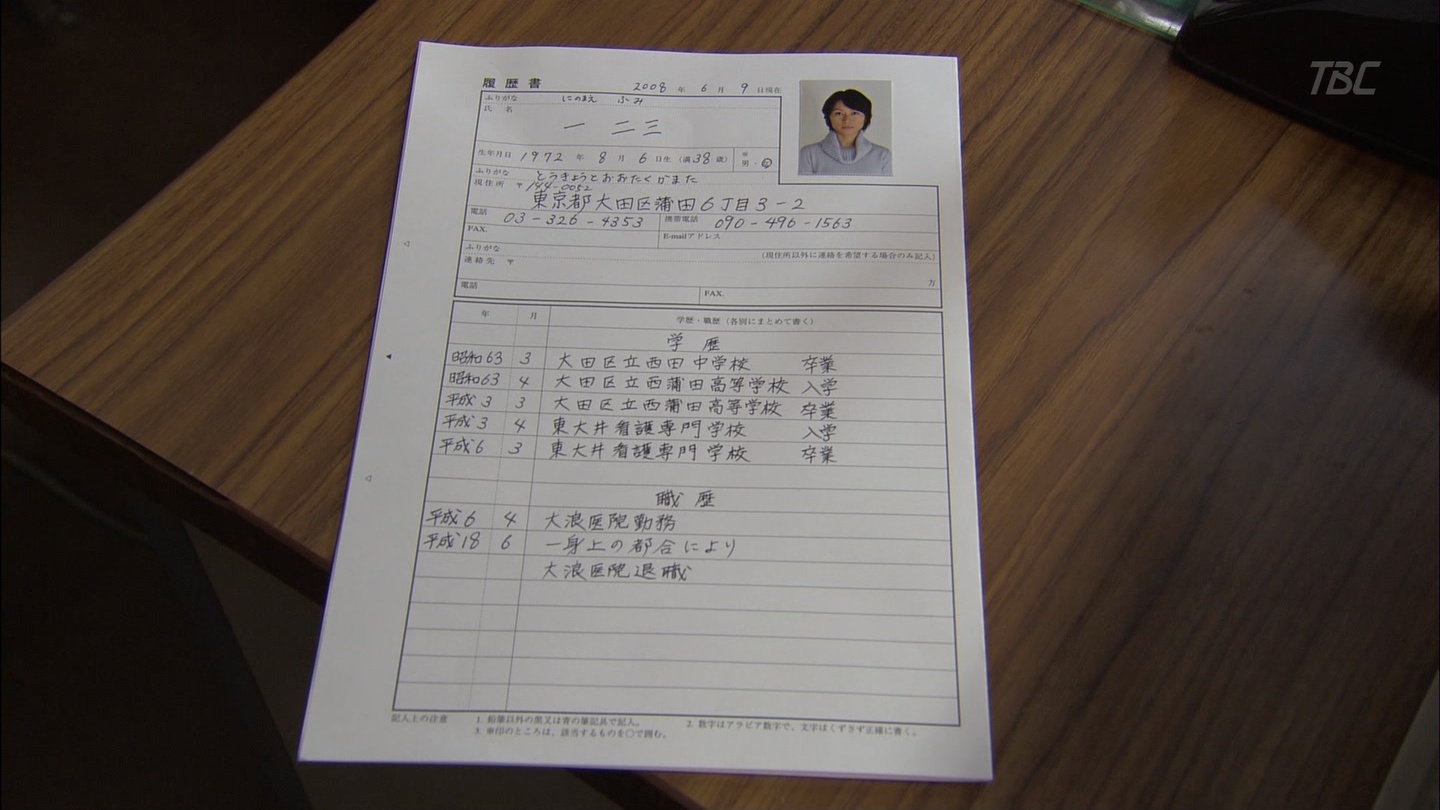 TBC
履歴書 2008年 6月 9日現在
ふりがな にのまえ ふみ
氏名 一 二三
生年月日 1972年 8月 6日生 (満38歳) ※ 男・女
ふりがな とうきょうとおおたくかまた
現住所 〒144-0052
東京都大田区蒲田6丁目3-2
電話 03-326-4353 携帯電話 090-496-1563
FAX. E-mailアドレス
ふりがな (現住所以外に連絡を希望する場合のみ記入)
連絡先 〒
方
電話 FAX.
年 月 学歴・職歴(各別にまとめて書く)
学歴
昭和63 3 大田区立西田中学校 卒業
昭和63 4 大田区立西蒲田高等学校 入学
平成3 3 大田区立西蒲田高等学校 卒業
平成3 4 東大井看護専門学校 入学
平成6 3 東大井看護専門学校 卒業
職歴
平成6 4 大浪医院勤務
平成18 6 一身上の都合により
大浪医院退職
記入上の注意 1. 鉛筆以外の黒又は青の筆記具で記入。 2. 数字はアラビア数字で、文字はくずさず正確に書く。
3. ※印のところは、該当するものを○で囲む。